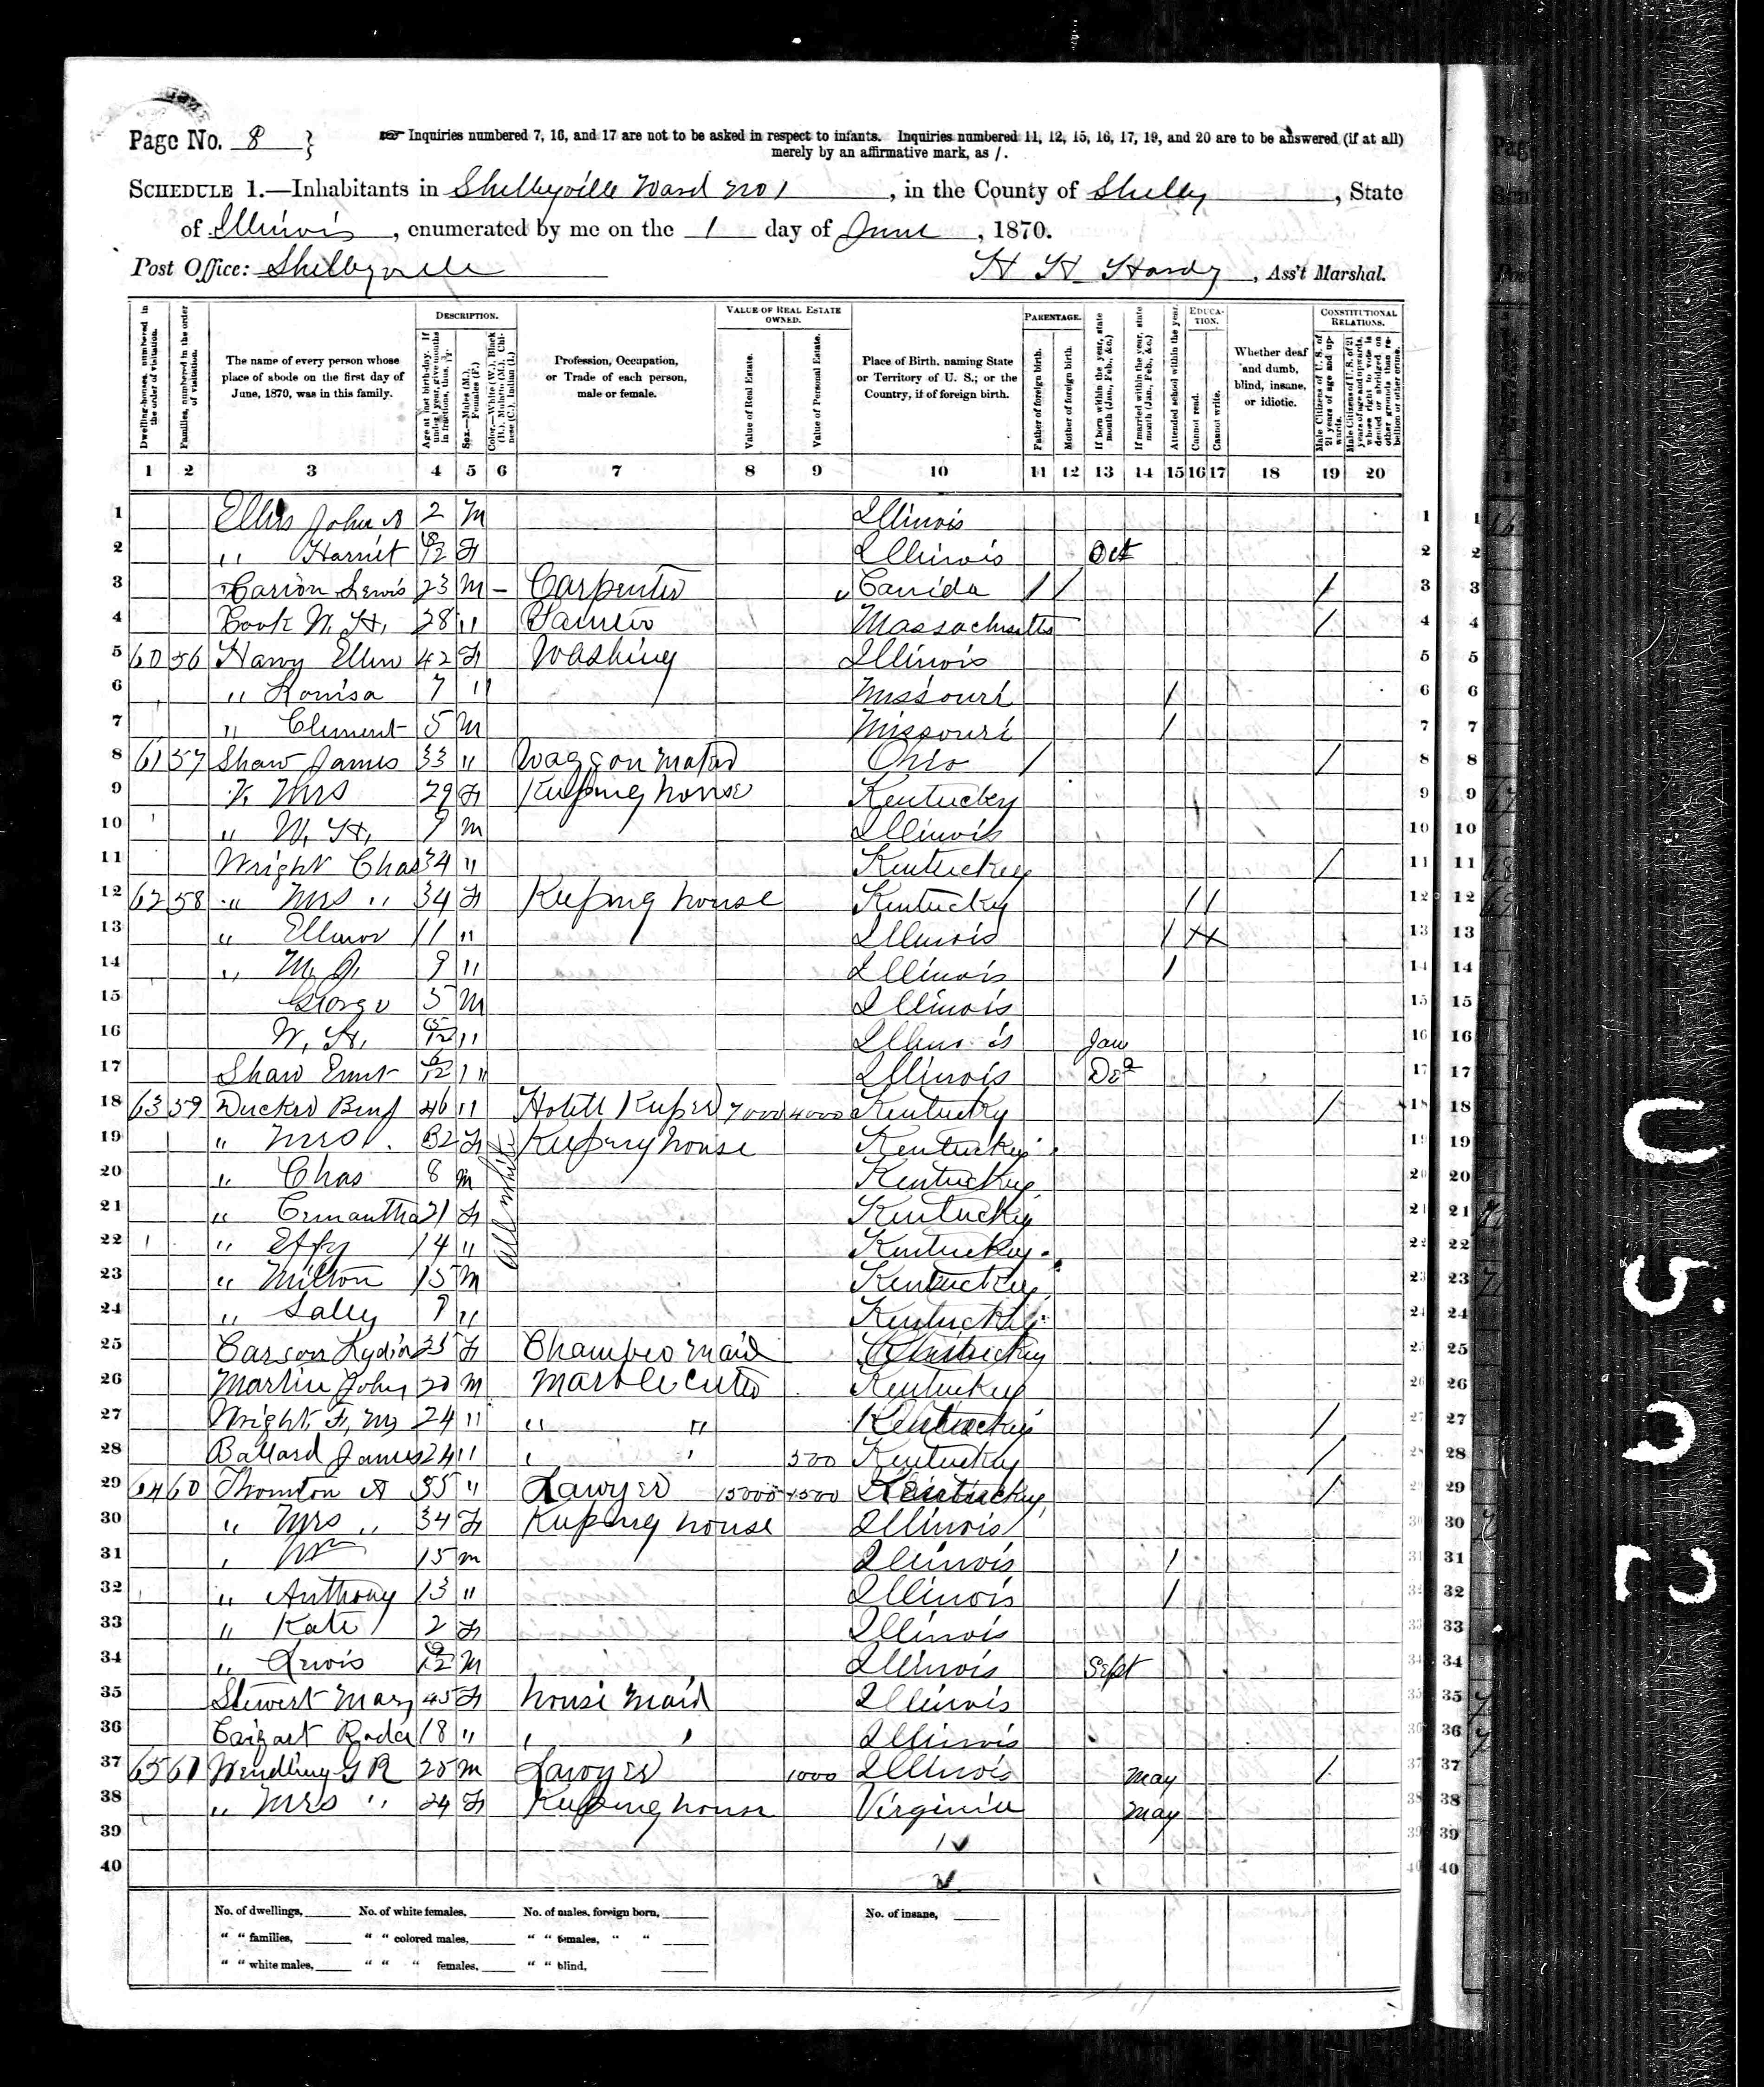 Page No. 8
Inquiries numbered 7, 16, and 17 are not to be asked in respect to infants. Inquiries numbered 11, 12, 15, 16, 17, 19, and 20 are to be answered (if at all)
merely by an affirmative mark, as /.
SCHEDULE 1.—Inhabitants in Shelbyville Ward No 1, in the County of Shelby, State
of Illinois, enumerated by me on the 1 day of June, 1870.
Post Office: Shelbyville
H H Hardy, Ass't Marshal.
DESCRIPTION.
VALUE OF REAL ESTATE OWNED.
PARENTAGE.
EDUCATION.
CONSTITUTIONAL RELATIONS.
Dwelling-houses, numbered in the order of visitation.
Families, numbered in the order of visitation.
The name of every person whose place of abode on the first day of June, 1870, was in this family.
Age at last birth-day. If under 1 year, give months in fractions, thus, 3/12.
Sex.—Males (M.), Females (F.)
Color.—White (W.), Black (B.), Mulatto (M.), Chinese (C.), Indian (I.)
Profession, Occupation, or Trade of each person, male or female.
Value of Real Estate.
Value of Personal Estate.
Place of Birth, naming State or Territory of U. S.; or the Country, if of foreign birth.
Father of foreign birth.
Mother of foreign birth.
If born within the year, state month (Jan., Feb., &c.)
If married within the year, state month (Jan., Feb., &c.)
Attended school within the year.
Cannot read.
Cannot write.
Whether deaf and dumb, blind, insane, or idiotic.
Male Citizens of U. S. of 21 years of age and upwards.
Male Citizens of U. S. of 21 years of age and upwards, whose right to vote is denied or abridged on other grounds than rebellion or other crime.
1 2 3 4 5 6 7 8 9 10 11 12 13 14 15 16 17 18 19 20
1 Ellis John A 2 M Illinois 1
2 " Harriet 8/12 F Illinois Oct 2
3 Carion Lewis 23 M – Carpenter Canida / / / 3
4 Cook W. H. 28 " Massachsetts / 4
5 60 56 Ellen 42 F Washing Illinois 5
6 " Louisa 7 " Missouri / 6
7 " Clement 5 M Missouri / 7
8 61 57 Shaw James 33 " Waggon Maker Ohio / / 8
9 " Mrs 29 F Keeping house Kentucky 9
10 " W. H. 9 M Illinois 10
11 Wright Chas 34 " Kentuckey / 11
12 62 58 " Mrs " 34 F Keeping house Kentucky / / 12
13 " Ellenor 11 " Illinois / 13
14 " M. J. 9 " Illinois / 14
15 George 5 M Illinois 15
16 W. H. 5/12 " Illinois Jan 16
17 Shaw 6/12 " Illinois Dec 17
18 63 59 Benj 46 " Hotell Keeper 7000 4000 Kentucky / 18
19 " Mrs 32 F Keeping house Kentuckey 19
20 " Chas 8 M Kentuckey 20
21 " 21 F Kentuckey 21
22 " Effy 14 " Kentuckey 22
23 " Milton 15 M Kentuckey 23
24 " Sally 9 " Kentuckey 24
All white
25 Carson Lydia F Chamber maid Kentuckey 25
26 Martin John 20 M Marble Cutter Kentuckey 26
27 Wright F. M. 24 " " " Kentuckey / 27
28 Ballard James 24 " " " 500 Kentuckey / 28
29 64 60 Thornton A " Lawyer 15000 1500 Kentuckey / 29
30 " Mrs " 34 F Keeping house Illinois 30
31 " Wm 15 M Illinois / 31
32 " Anthony 13 " Illinois / 32
33 " Kate 2 F Illinois 33
34 " Lewis 9/12 M Illinois Sept 34
35 Stewert Mary 45 F house Maid Illinois 35
36 18 " " " Illinois 36
37 65 61 Wendling G R 25 M Lawyer 1000 Illinois May / 37
38 " Mrs " 24 F Keeping house Virginia May 38
39 39
40 40
No. of dwellings, No. of white females, No. of males, foreign born, No. of insane,
" " families, " " colored males, " " females, " "
" " white males, " " " females, " " blind,